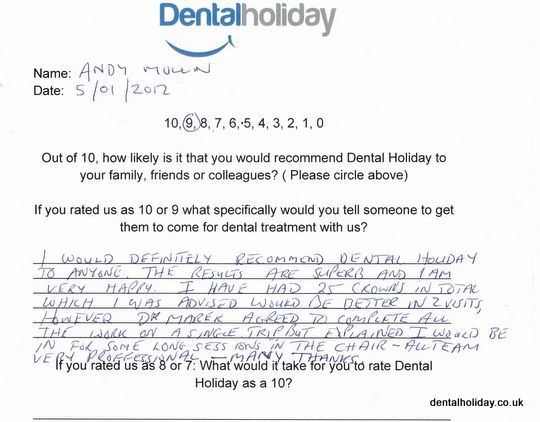 Dentalholiday
Name: ANDY MULLIN
Date: 5/01/2012
10, 9, 8, 7, 6, 5, 4, 3, 2, 1, 0
Out of 10, how likely is it that you would recommend Dental Holiday to
your family, friends or colleagues? ( Please circle above)
If you rated us as 10 or 9 what specifically would you tell someone to get
them to come for dental treatment with us?
I WOULD DEFINITELY RECOMMEND DENTAL HOLIDAY
TO ANYONE. THE RESULTS ARE SUPERB AND I AM
VERY HAPPY. I HAVE HAD 25 CROWNS IN TOTAL
WHICH I WAS ADVISED WOULD BE BETTER IN 2 VISITS,
HOWEVER DR MAREK AGREED TO COMPLETE ALL
THE WORK ON A SINGLE TRIP BUT EXPLAINED I WOULD BE
IN FOR SOME LONG SESSIONS IN THE CHAIR - ALL TEAM
VERY PROFFESSIONAL - MANY THANKS
If you rated us as 8 or 7: What would it take for you to rate Dental
Holiday as a 10?
dentalholiday.co.uk